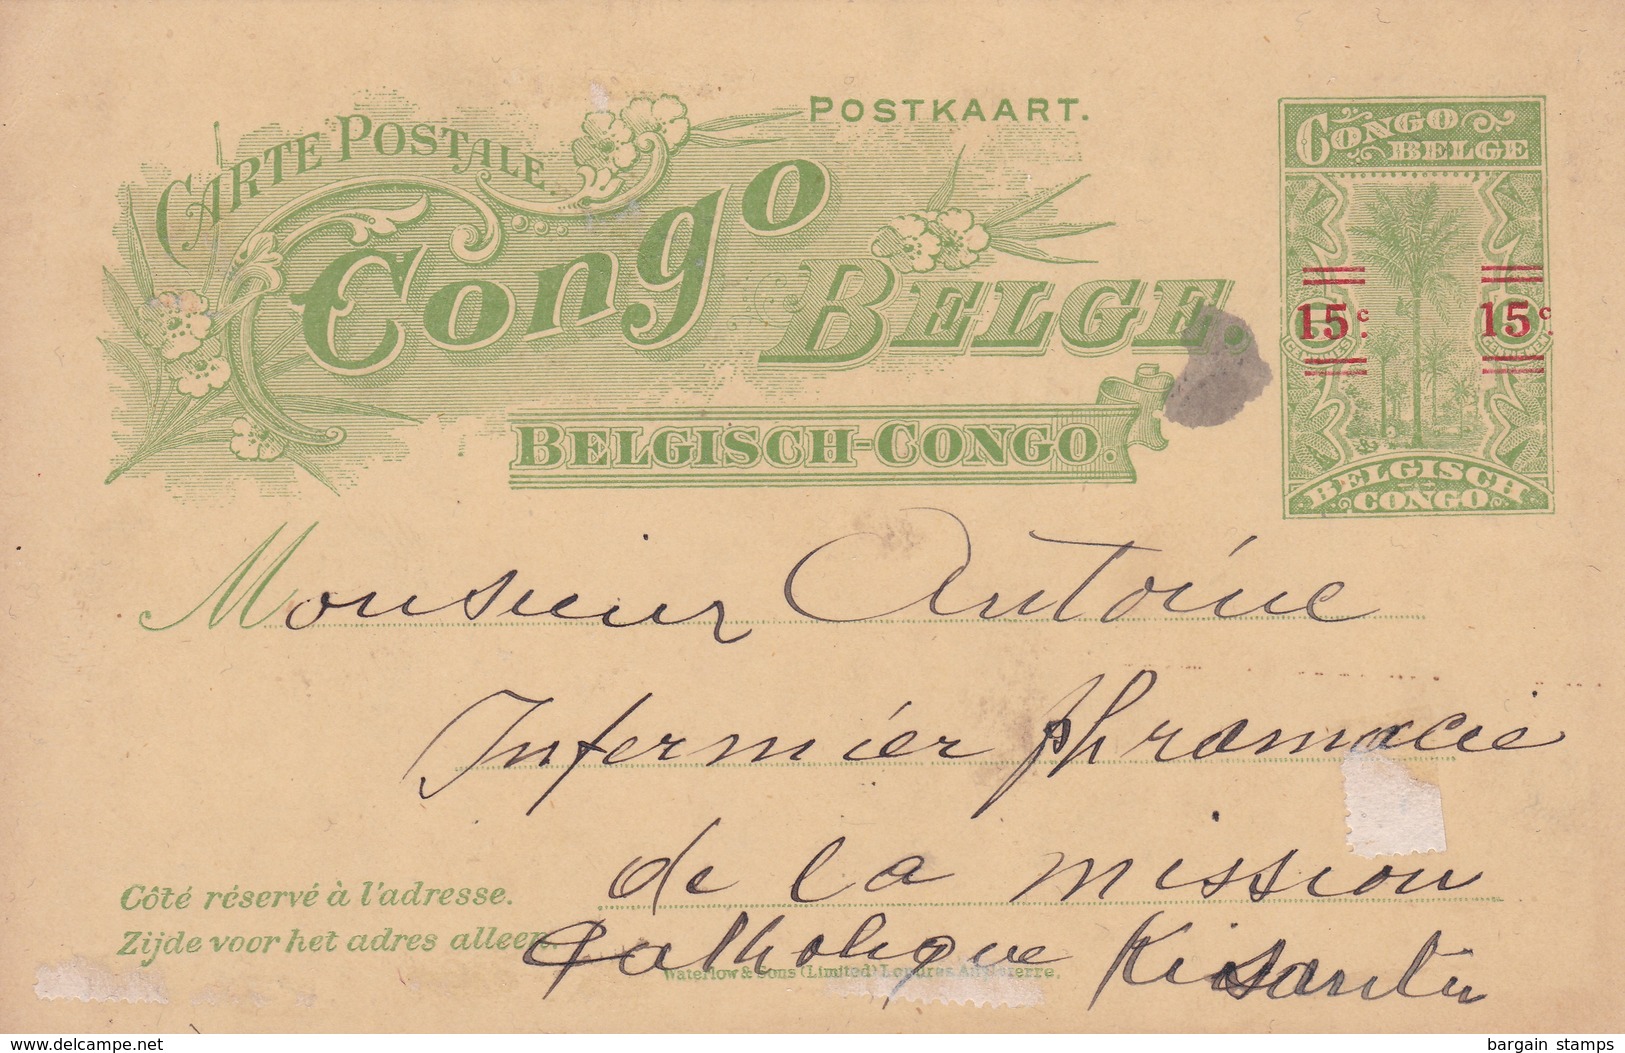 CARTE POSTALE.
POSTKAART.
Congo
BELGE.
BELGISCH-CONGO.
CONGO
BELGE
15c. 15c.
BELGISCH
CONGO.
Monsieur Antoine
Infermiér phramacie
de la mission
Catholique Kisantu
Côté réservé à l'adresse.
Zijde voor het adres alleen.
Waterlow & Sons (Limited) Londres Angleterre.
www.delcampe.net
bargain stamps